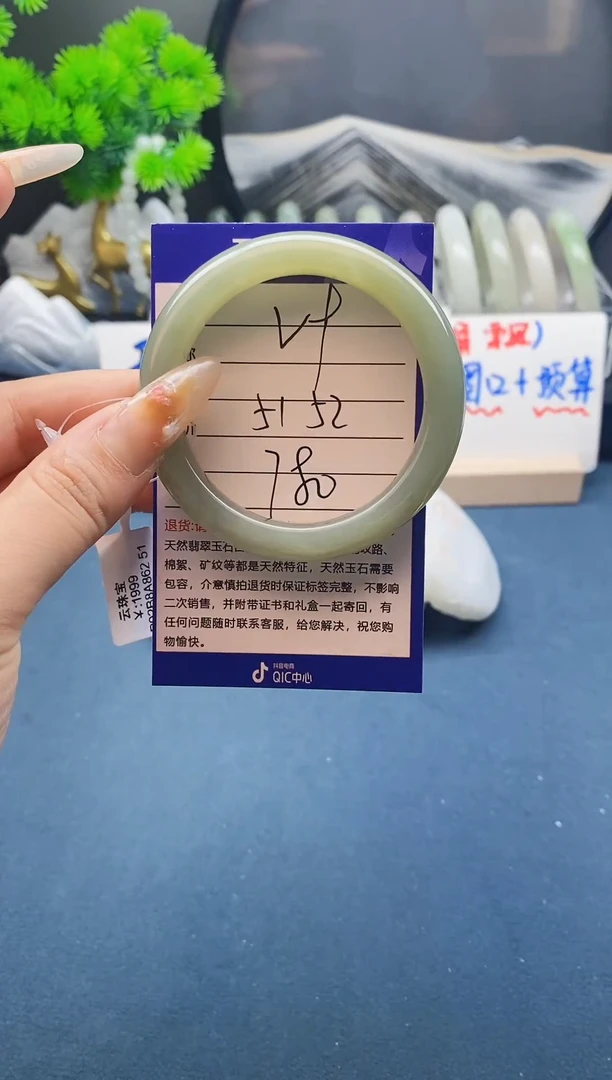 51 52
780
退货:
天然翡翠玉石
棉絮、矿纹等都是天然特征，天然玉石需要
包容，介意慎拍退货时保证标签完整，不影响
二次销售，并附带证书和礼盒一起寄回，有
任何问题随时联系客服，给您解决，祝您购
物愉快。
抖音电商
QIC中心
云珠宝
￥:1999
粗)
圈口+预算